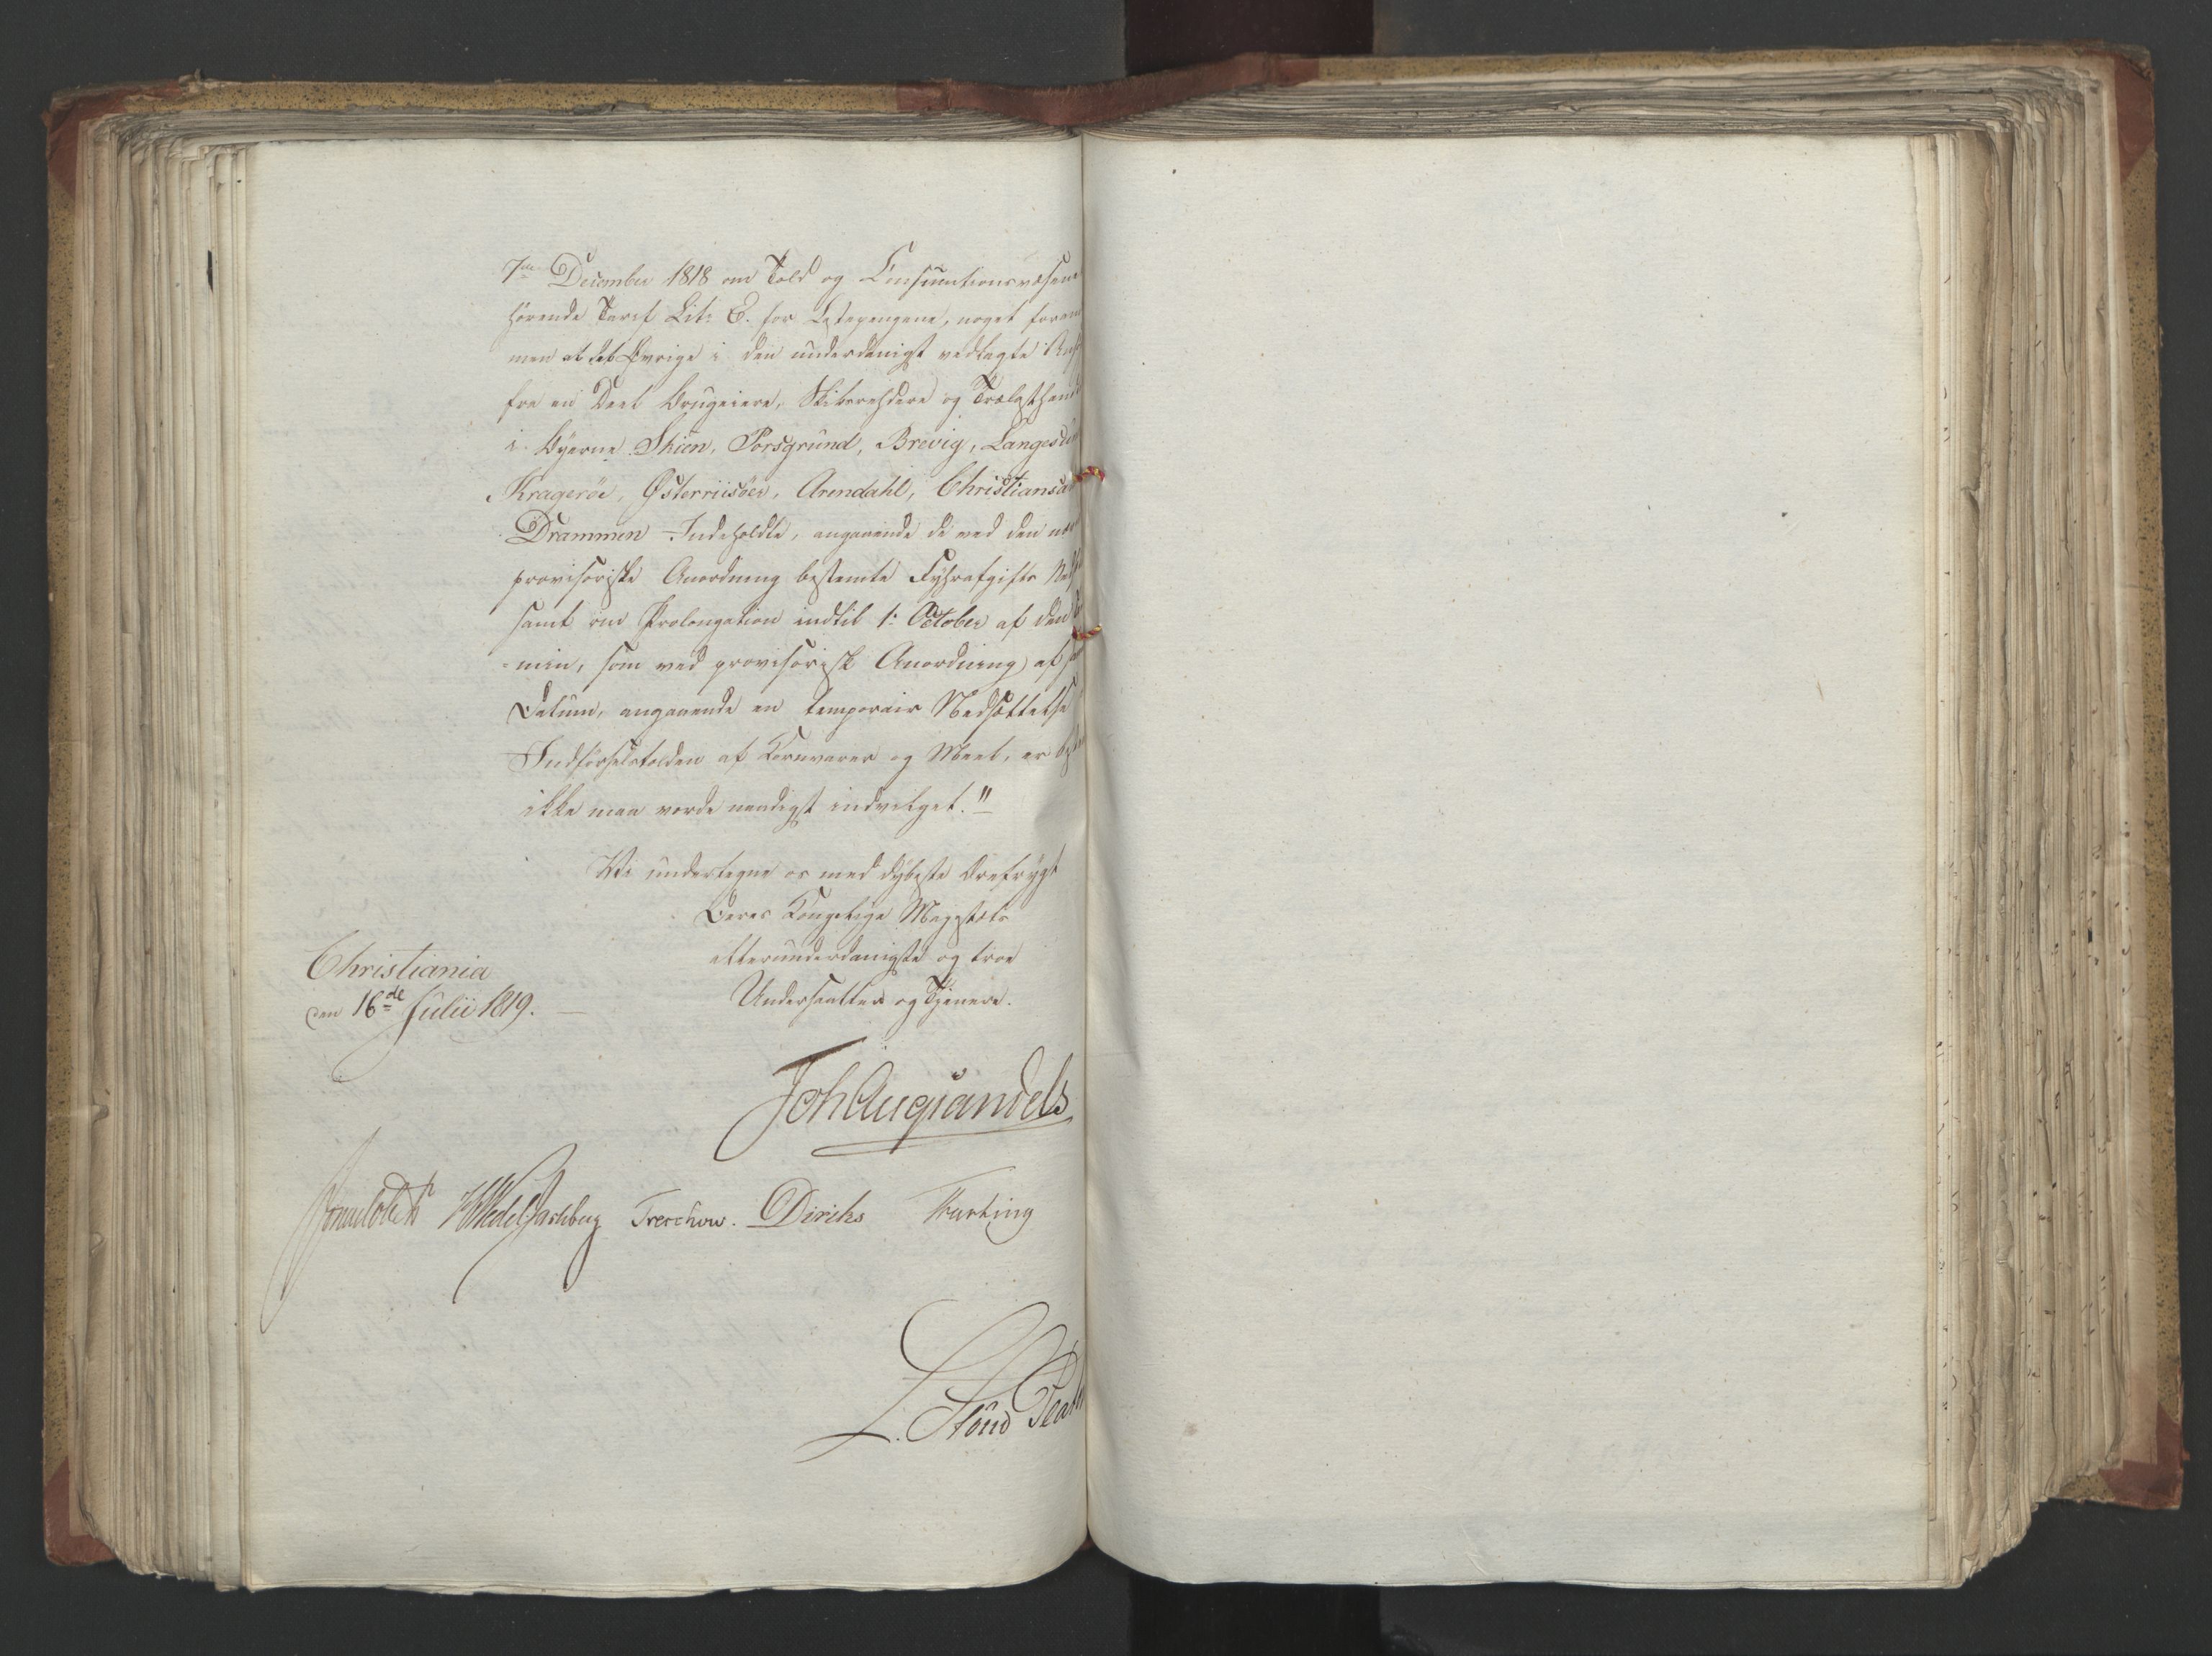 7de December 1818 om Told og Consumtionsvæsene
hørende Tarif Litr E. for Lestepengene, noget
men at det Øvrige i den underdanigst vedlagte
fra en Deel Brugeiere, Skibsrehdere og Trælasthand
i Byerne Skien, Porsgrund, Brevig, Langesu
Kragerøe, Østerriisöer, Arendahl, Christiansa
Drammen Indeholdte, angaaende de ved den
provisoriske Anordning bestemte Fyhrafgifts
samt om Prolongation indtil 1: October af den
-min, som ved provisorisk Anordning af
Datum, angaaende en temporair Nedsættelse
Indførselstolden af Kornvarer og Meel, er
ikke maa vorde naadigst indvilget."
Vi undertegne os med dybeste Ærefrygt
Deres Kongelige Majestæts
allerunderdanigste og troe
Undersaatter og Tjenere.
Christiania
den 16de Julii 1819.
Joh Aug Sandels
Sommerhielm HWedel Jarlsberg Treschow. Diriks
L. Stoud